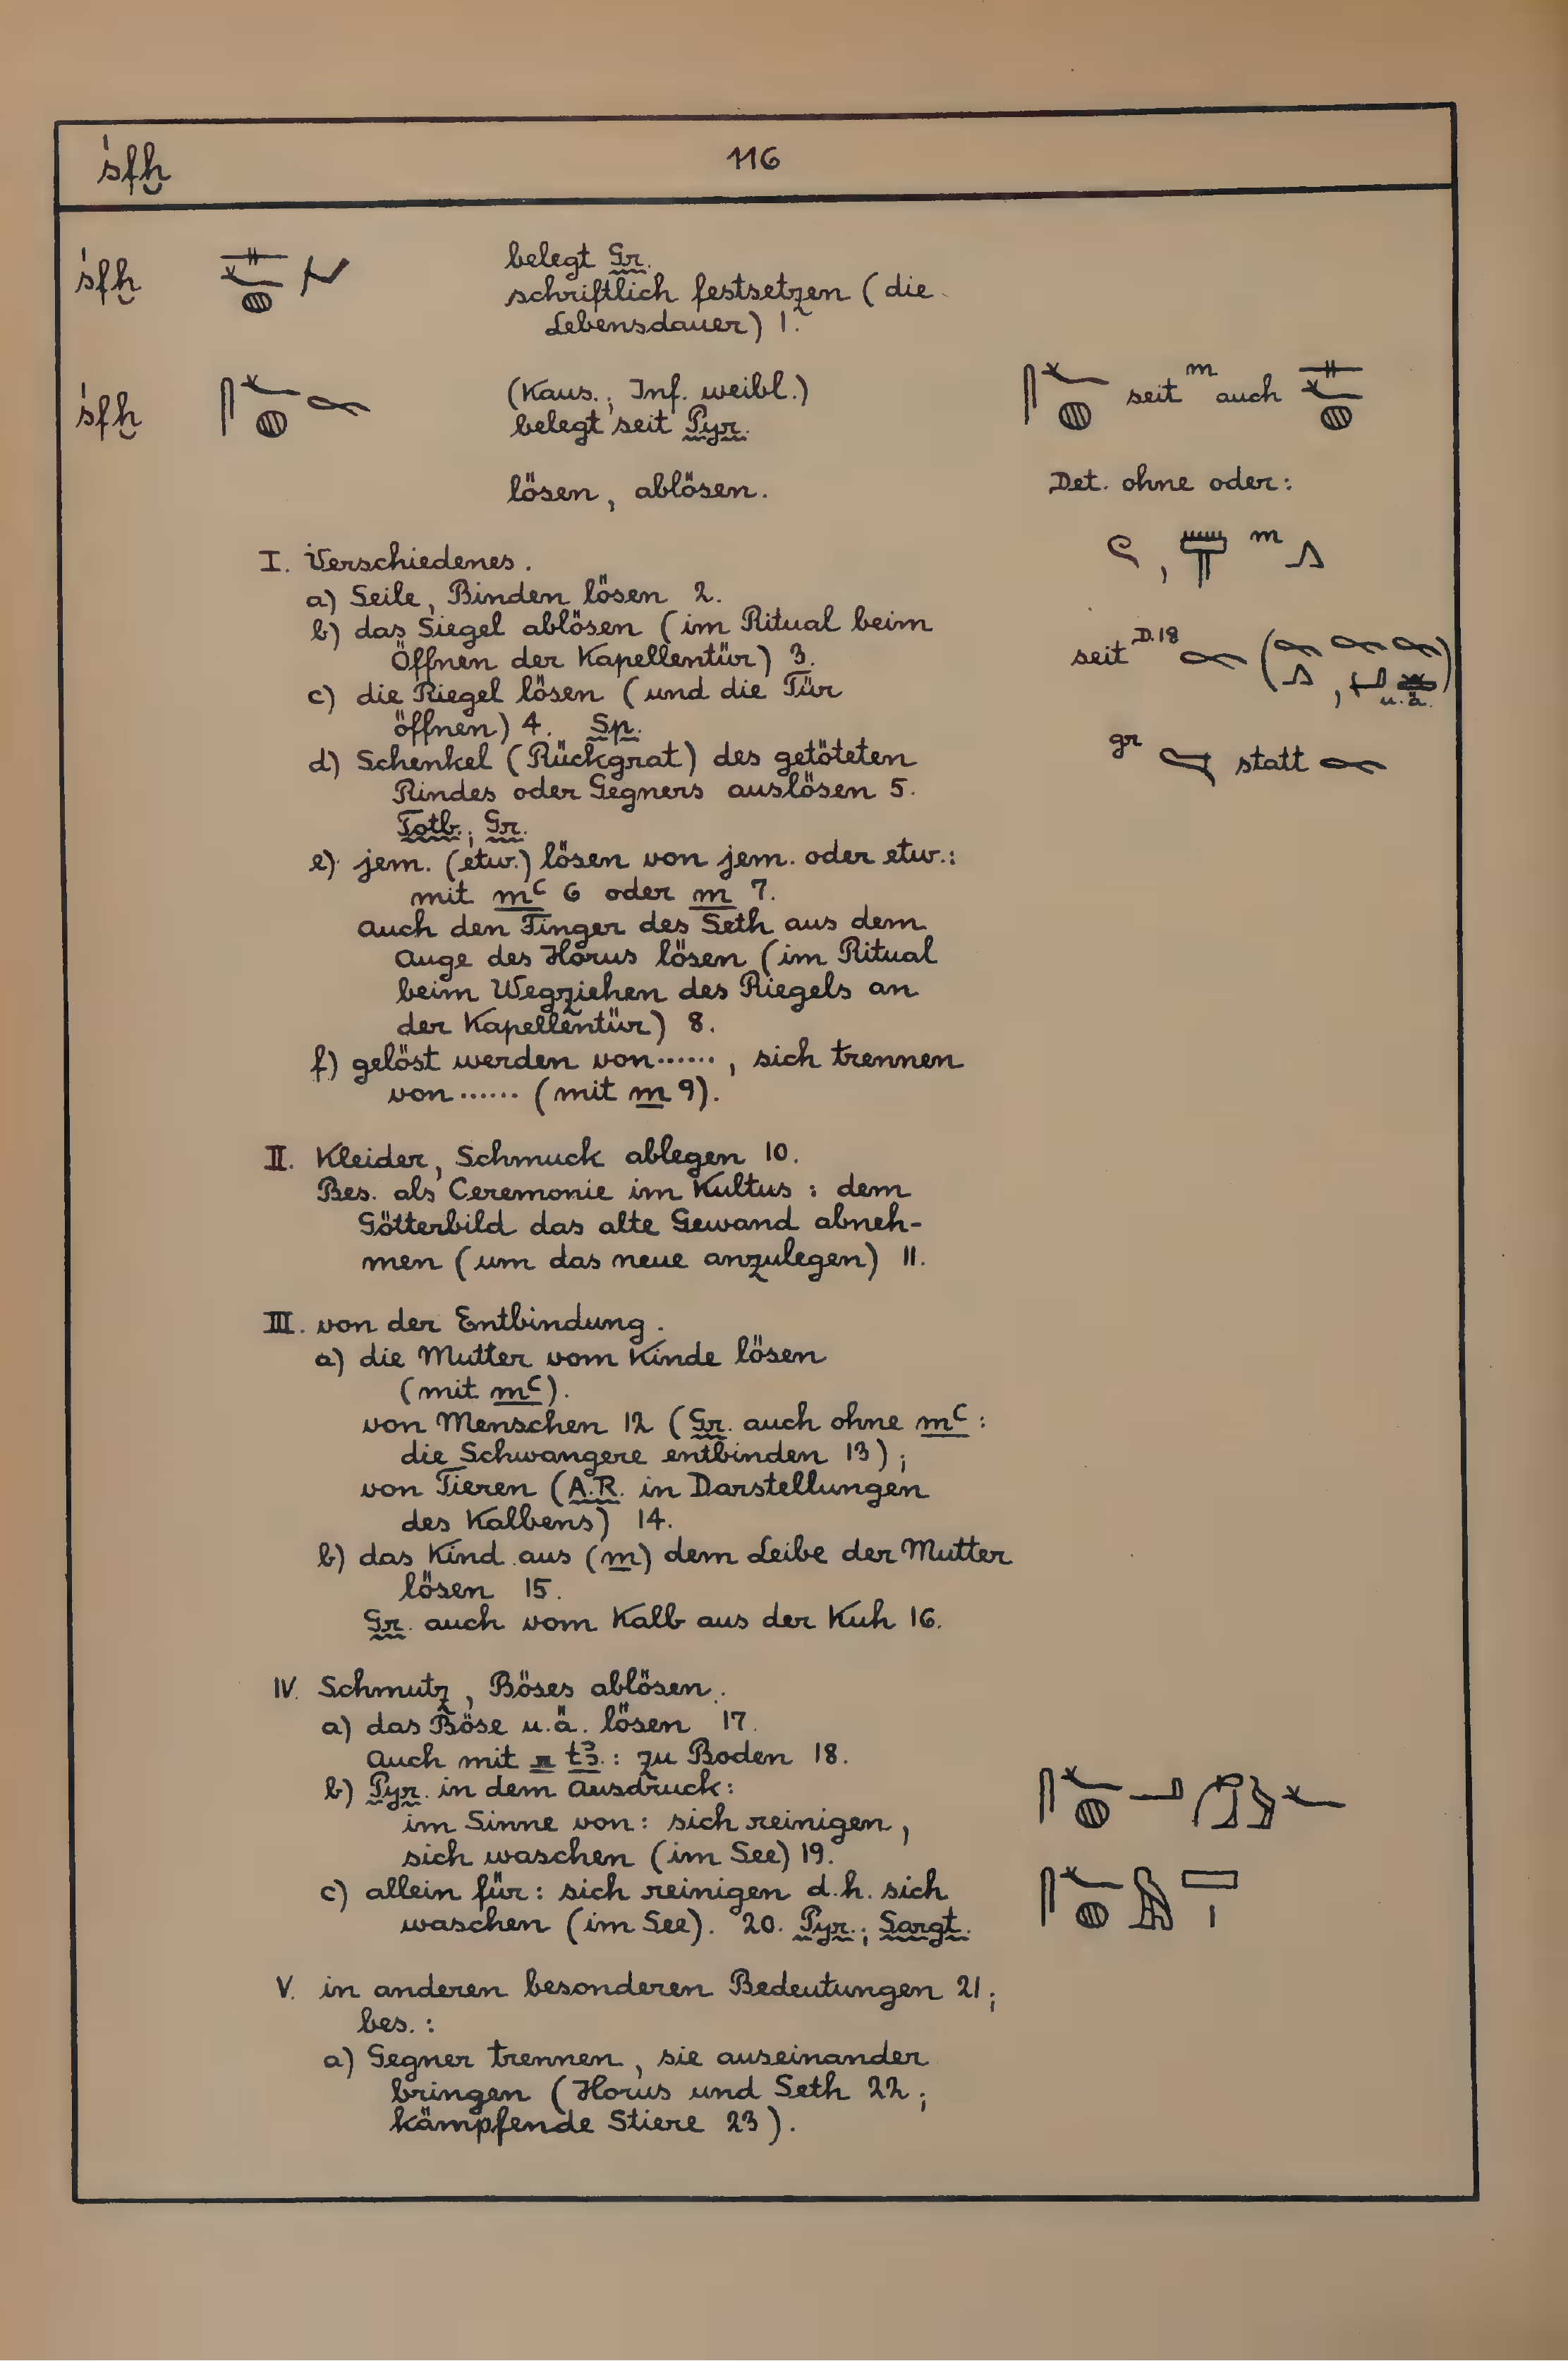 śfḫ 116
śfḫ belegt Gr.
schriftlich festsetzen (die
Lebensdauer) 1.
śfḫ (Kaus.; Inf. weibl.) seit m auch
belegt seit Pyr.
lösen, ablösen. Det. ohne oder:
, m
I. Verschiedenes.
a) Seile, Binden lösen 2.
b) das Siegel ablösen (im Ritual beim
Öffnen der Kapellentür) 3. seit D.18 ( , u.ä.)
c) die Riegel lösen (und die Tür
öffnen) 4. Sp.
d) Schenkel (Rückgrat) des getöteten gr statt
Rindes oder Gegners auslösen 5.
Totb.; Gr.
e) jem. (etw.) lösen von jem. oder etw.:
mit mꜥ 6 oder m 7.
Auch den Finger des Seth aus dem
Auge des Horus lösen (im Ritual
beim Wegziehen des Riegels an
der Kapellentür) 8.
f) gelöst werden von ......, sich trennen
von ...... (mit m 9).
II. Kleider, Schmuck ablegen 10.
Bes. als Ceremonie im Kultus: dem
Götterbild das alte Gewand abneh-
men (um das neue anzulegen) 11.
III. von der Entbindung.
a) die Mutter vom Kinde lösen
(mit mꜥ).
von Menschen 12 (Gr. auch ohne mꜥ:
die Schwangere entbinden 13);
von Tieren (A.R. in Darstellungen
des Kalbens) 14.
b) das Kind aus (m) dem Leibe der Mutter
lösen 15.
Gr. auch vom Kalb aus der Kuh 16.
IV. Schmutz, Böses ablösen.
a) das Böse u.ä. lösen 17.
Auch mit r tꜣ.: zu Boden 18.
b) Pyr. in dem Ausdruck:
im Sinne von: sich reinigen,
sich waschen (im See) 19.
c) allein für: sich reinigen d.h. sich
waschen (im See). 20. Pyr.; Sargt.
V. in anderen besonderen Bedeutungen 21;
bes.:
a) Gegner trennen, sie auseinander
bringen (Horus und Seth 22;
kämpfende Stiere 23).